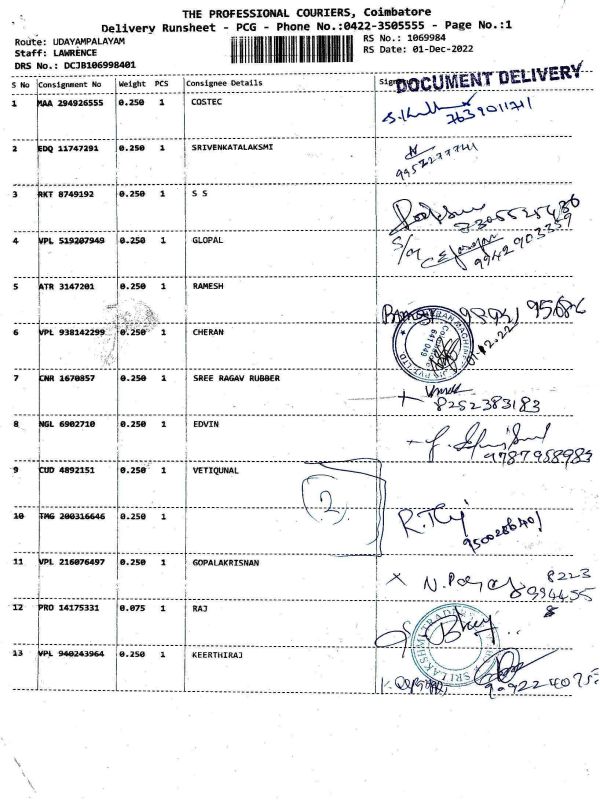 THE PROFESSIONAL COURIERS, Coimbatore
Delivery Runsheet - PCG - Phone No.:0422-3505555 - Page No.:1
Route: UDAYAMPALAYAM
RS No.: 1069984
Staff: LAWRENCE
RS Date: 01-Dec-2022
DRS No.: DCJB106998401
S No Consignment No Weight PCS Consignee Details
DOCUMENT DELIVERY
1 MAA 294926555 0.250 1 COSTEC
7639011711
2 EDQ 11747291 0.250 1 SRIVENKATALAKSMI
9952277741
3 RKT 8749192 0.250 1 S S
7305525486
4 VPL 519207949 0.250 1 GLOPAL
9942903359
5 ATR 3147201 0.250 1 RAMESH
6 VPL 938142299 0.250 1 CHERAN
641 049
01.12.22
7 CNR 1670857 0.250 1 SREE RAGAV RUBBER
8252383183
8 NGL 6902710 0.250 1 EDVIN
9787958984
9 CUD 4892151 0.250 1 VETIQUNAL
2
10 TMG 200316646 0.250 1
11 VPL 216076497 0.250 1 GOPALAKRISNAN
8223
12 PRO 14175331 0.075 1 RAJ
13 VPL 940243964 0.250 1 KEERTHIRAJ